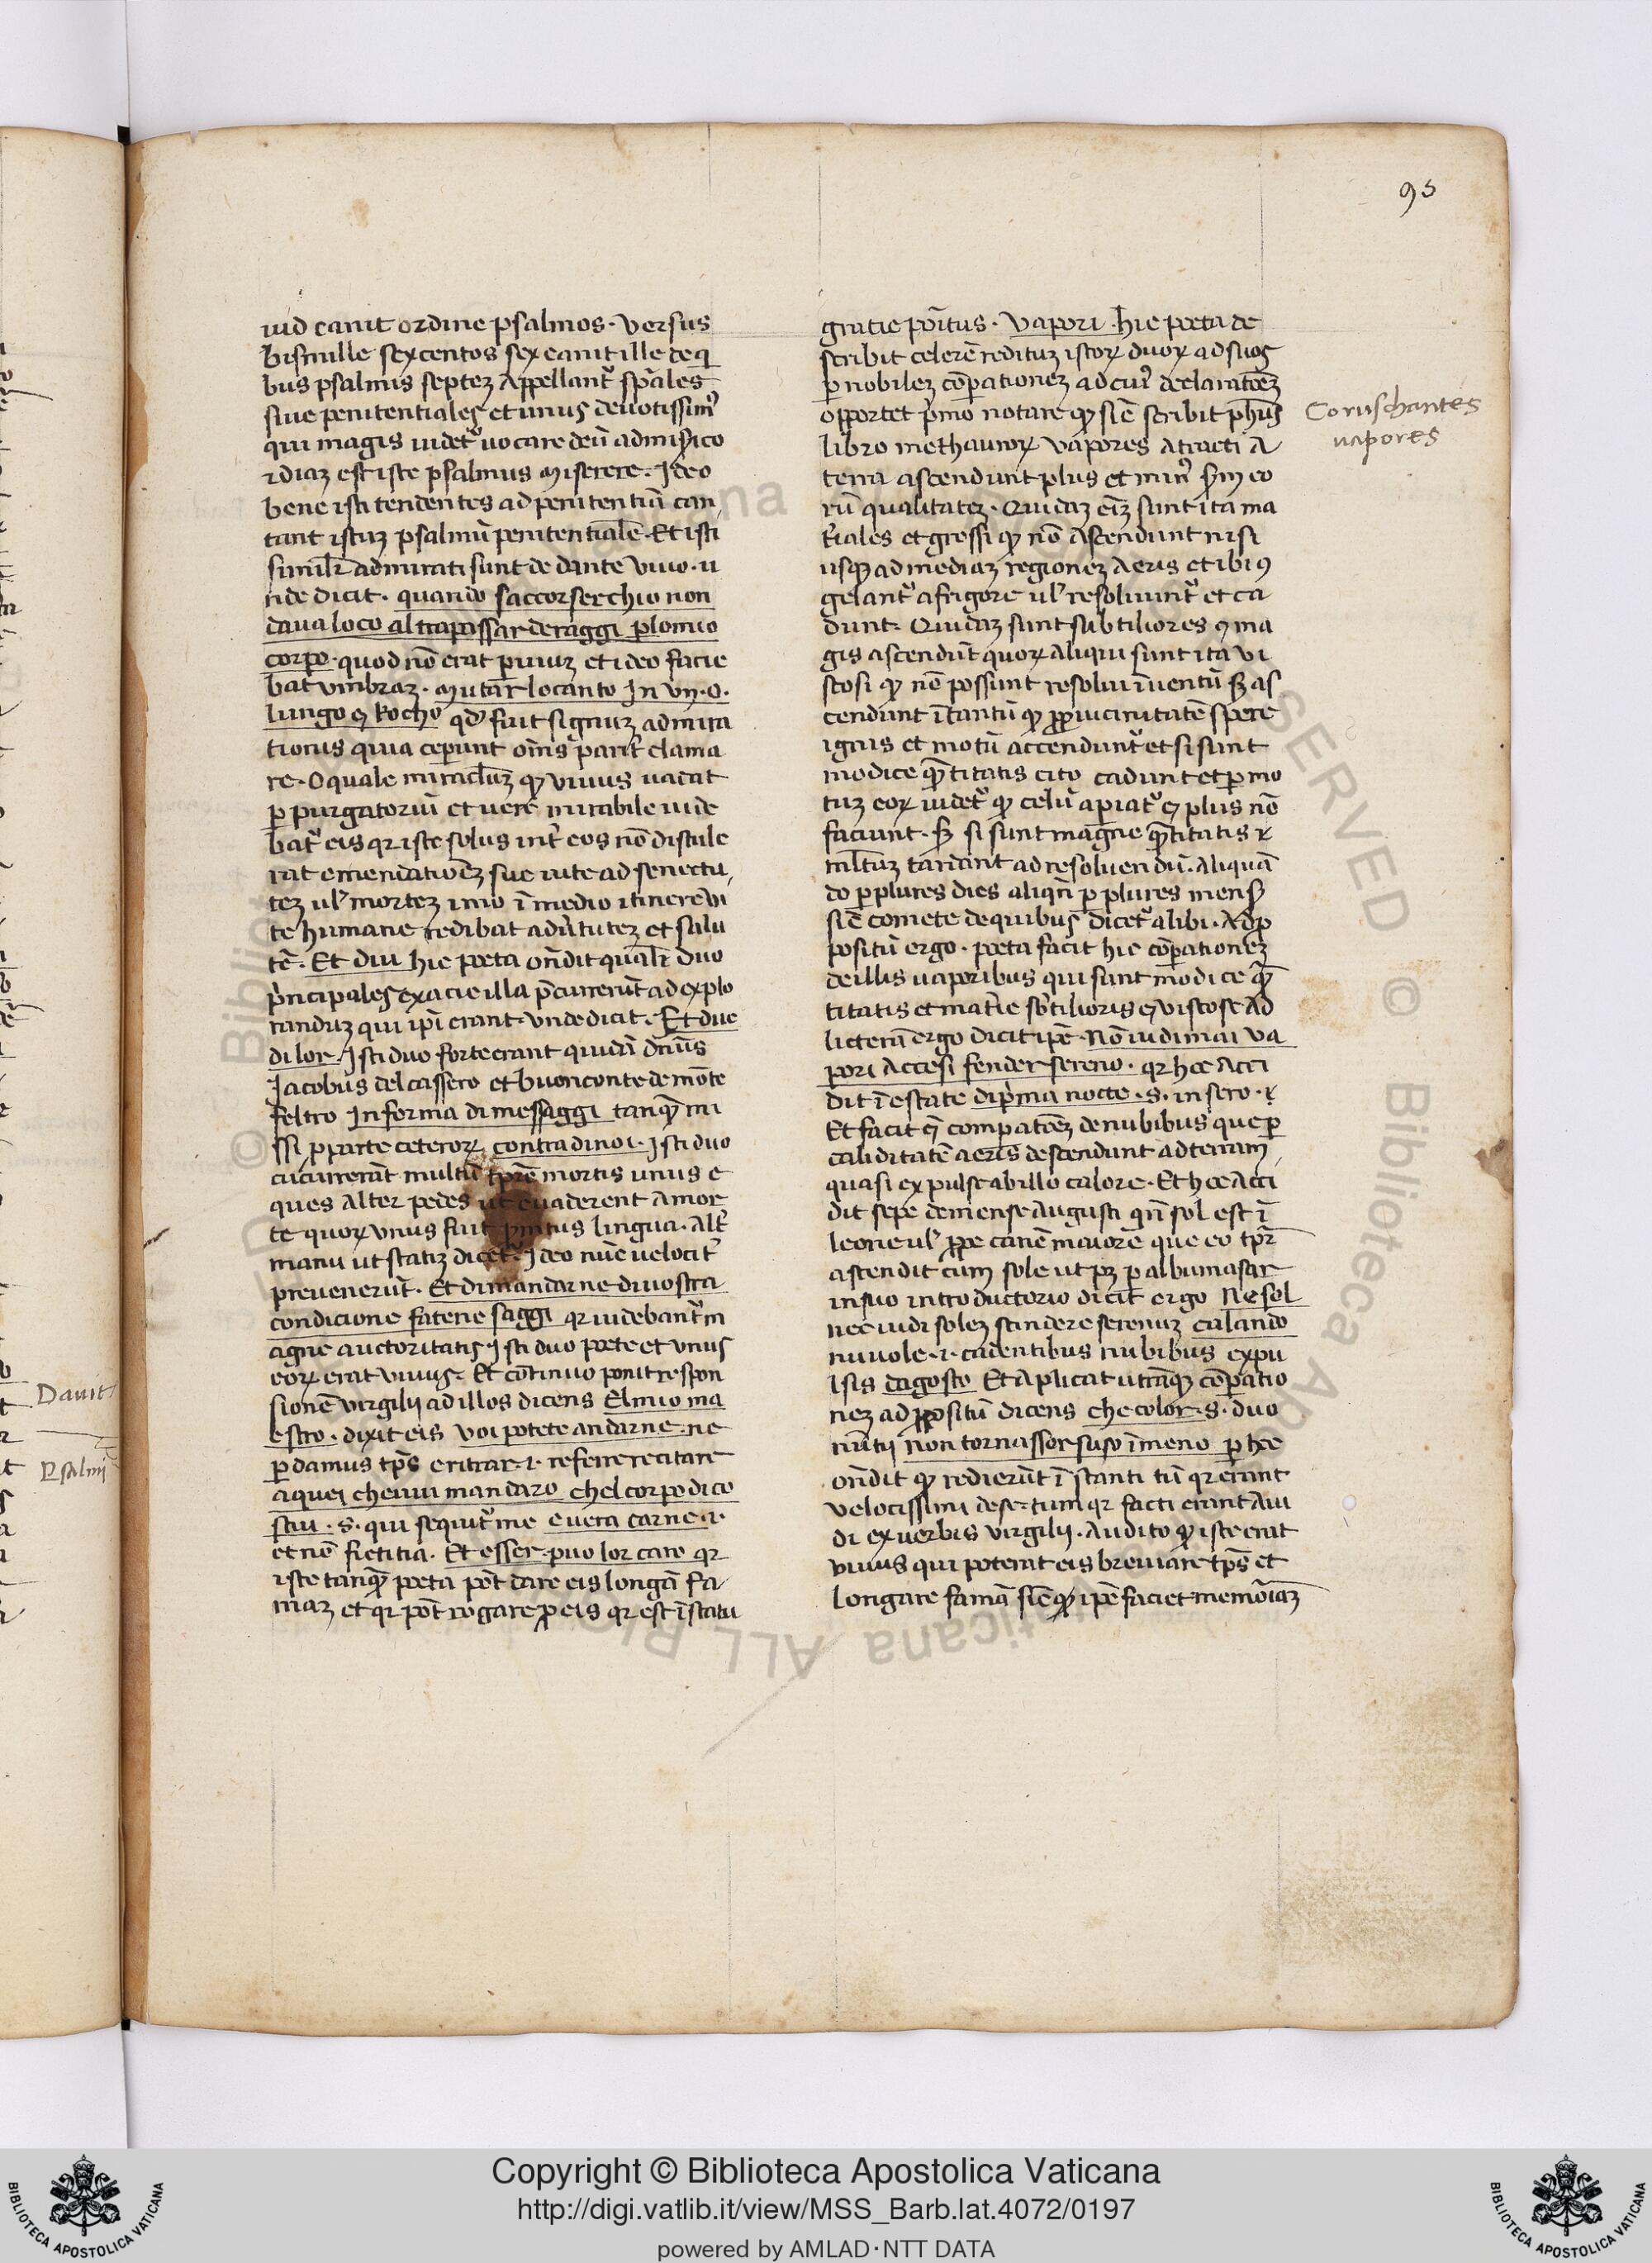 95
uid canit ordine psalmos. Versus
bismille sex centos sex canit ille de qͥ
bus psalmis septeʒ Appellantͬ spāles
siue penitentiales et unus deuotissimꝰ
qui magis uidetͬ uocare deū ad misico
rdiaʒ est iste psalmus Miserere. Ideo
bene isti tendentes ad penitentiā can
tant istuʒ psalmū penitentialē. Et isti
similr̄ admirati sunt de dante viuo. u
nde dicit. quando saccorser chio non
daua loco al trapassar de raggi ꝑ lo mio
corpo. quod nō erat ꝑuiuʒ et ideo facie
bat vmbraʒ. Mutar lo canto In vn. O.
lungo ⁊ Rocho qd̓ fuit signuʒ admira
tionis quia ceperunt oēs parit̓ clama
re. O quale miracl̄uʒ qꝫ viuus uadat
ꝑ purgatoriū et uere mirabile uide
batͬ eis qꝛ iste solus int̓ eos nō distule
rat emendatiōeʒ sue uite ad senectu
teʒ ul̓ morteʒ imo ī medio itinere vi
te humane redibat ad uirtuteʒ et salu
tē. Et diu hic poeta ōndit qualr̄ duo
pͥncipales ex acie illa p̄currerūt ad explo
randuʒ qui ip̄i erant. vnde dicit. Et due
di lor. Isti duo forte erant quidā dn̄us
Jacobus del cassero et buonconte de mōte
feltro In forma di messaggi tanqꝫ mi
ssi ꝓ parte ceteroꝝ contradinoi. Isti duo
cucurrerāt multū tp̄re mortis unus e
ques Alter pedes ut euaderent A mor
te quoꝝ vnus fuit pͥnitus lingua. Alt̓
manu ut statiʒ dicetͬ. Ideo nūc uelocit̓
preuenerūt. Et dimandarne di uostra
condicione fatene saggi qꝛ uidebantͬ m
agne auctoritatis. Isti duo poete et vnus
eoꝝ erat viuus. Et cōtinuo ponit respon
sionē virgilij ad illos dicens El mio ma
estro. dixit eis voi potete andarne. ne
ꝑdamus tp̄s e ritrar. i. referre recitare
a quei che uui mandaro chel corpo di co
stui. s. qui sequitͬ me e uera carne. i.
et nō fictitia. Et esser puo lor caro qꝛ
iste tanqꝫ poeta pōt dare eis longā fa
maʒ et qꝛ pōt rogare ꝓ eis qꝛ est ī statu
gratie positus. Vapori. hic poeta de
scribit celerē redituʒ istoꝝ duoꝝ ad suos
ꝑ nobileʒ cōꝑationeʒ ad cuiꝰ declaratōeʒ
opportet pͥmo notare qꝫ sic̄ scribit ph̄us
libro methauroꝝ vapores Atracti A
terra ascendunt plus et minꝰ ẜm eo
rū qualitateʒ. Quidaʒ eīʒ sunt ita ma
t̓iales et grossi qꝫ nō Ascendunt nisi
usqꝫ ad mediaʒ regioneʒ aeris et ibi ꝯ
gelantͬ a frigore ul̓ resoluuntͬ et ca
dunt. Quidaʒ sunt subtiliores ⁊ ma
gis ascendūt quoꝝ aliqui sunt ita vi
scosi qꝫ nō possunt resolui ī uentū sꝫ as
cendunt ī tantū qꝫ ꝓpiucinitatē spere
ignis et motū accenduntͬ et si sunt
modice qꝫntitatis cito cadunt et ꝑ mo
tuʒ eoꝝ uidetͬ qꝫ celū apiatͬ ⁊ plus nō
faciunt. sꝫ si sunt magne qꝫntitatis ⁊
ml̄tuʒ tardant ad resoluendū. Aliquā
do ꝑ plures dies aliqn̄ ꝑ plures mens̓
sic̄ comete de quibus dicetͬ alibi. Ad ꝓ
positū ergo. poeta facit hic cōꝑationeʒ
de illis uaporibus qui sunt modice qꝫn
titatis et mat̓ie sbtilioris ⁊ viscose Ad
licterā ergo dicit ip̄e. Nō uidi mai va
pori Accesi fender sereno. qꝛ hoc Acci
dit ī estate di pͥma nocte. s. in sero. ⁊
Et facit ⁊ compatōeʒ de nubibus que ꝑ
caliditatē aeris descendunt ad terram
quasi expulse ab illo calore. Et hoc Acci
dit sepe de mense Augusti qn̄ sol est ī
leone ul̓ ꝓpe canē maiorē que eo tp̄r
ascendit cum sole ut pʒ ꝑ albumasar
in suo introductorio dicit ergo Ne sol
nec uidi soleʒ scindere serenuʒ calando
nuuole. i. cadentibus nubibus expu
lsis dagosto Et Aplicat utrāqꝫ cōꝑatio
neʒ ad ꝓpositū dicens che color. s. duo
nūtij non tornasser suso ī meno ꝑ hoc
ōndit qꝫ redierūt ī stanti tū qꝛ erant
velocissimi de se. tum qꝛ facti erant Aui
di ex verbis virgilij. Audito qꝫ iste erat
viuus qui poterat eis breuiare tp̄s et
longare famā sic̄ qꝫ ip̄e faciet memōiaʒ
Coruschantes
uapores
Dauit
Psalmi
Copyright © Biblioteca Apostolica Vaticana
http://digi.vatlib.it/view/MSS_Barb.lat.4072/0197
powered by AMLAD·NTT DATA
BIBLIOTECA APOSTOLICA VATICANA
BIBLIOTECA APOSTOLICA VATICANA